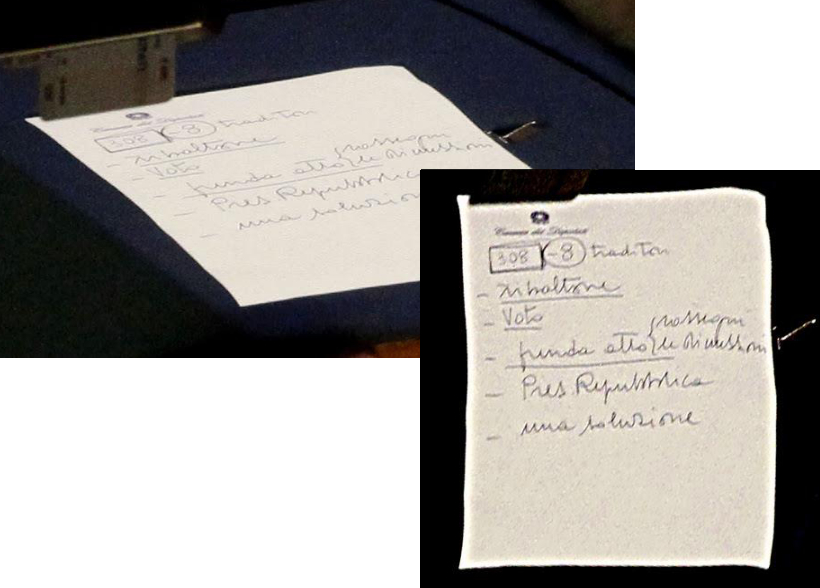 Camera dei Deputati
308 -8 traditori
- ribaltone
- Voto
prossegui
- prenda atto le dimissioni
- Pres. Repubblica
- una soluzione
Camera dei Deputati
308 -8 traditori
- ribaltone
- Voto
- prenda atto le dimissioni
- Pres. Repubblica
- una soluzione